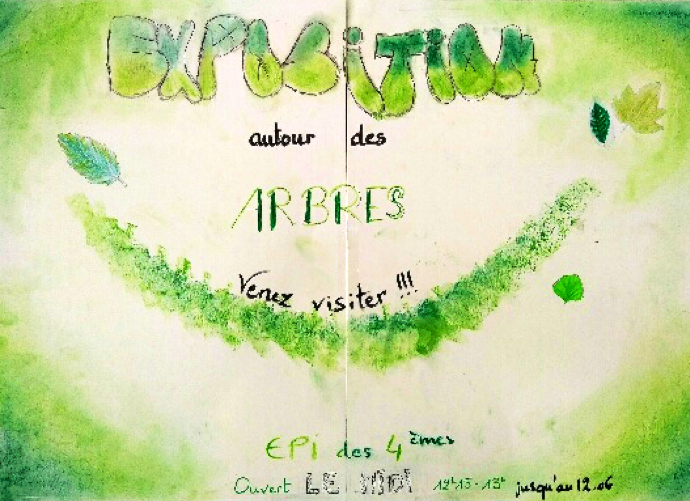 EXPOSITION
autour des
ARBRES
Venez visiter !!!
EPI des 4èmes
Ouvert LE MIDI 12h15-13h jusqu'au 12.06